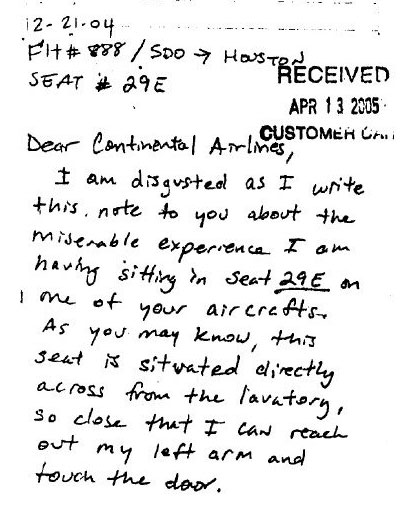 12-21-04
Flt # 888 / SDO → HOUSTON
SEAT # 29E
RECEIVED
APR 13 2005
CUSTOMER
Dear Continental Airlines,
I am disgusted as I write
this note to you about the
miserable experience I am
having sitting in seat 29E on
one of your aircrafts.
As you may know, this
seat is situated directly
across from the lavatory,
so close that I can reach
out my left arm and
touch the door.